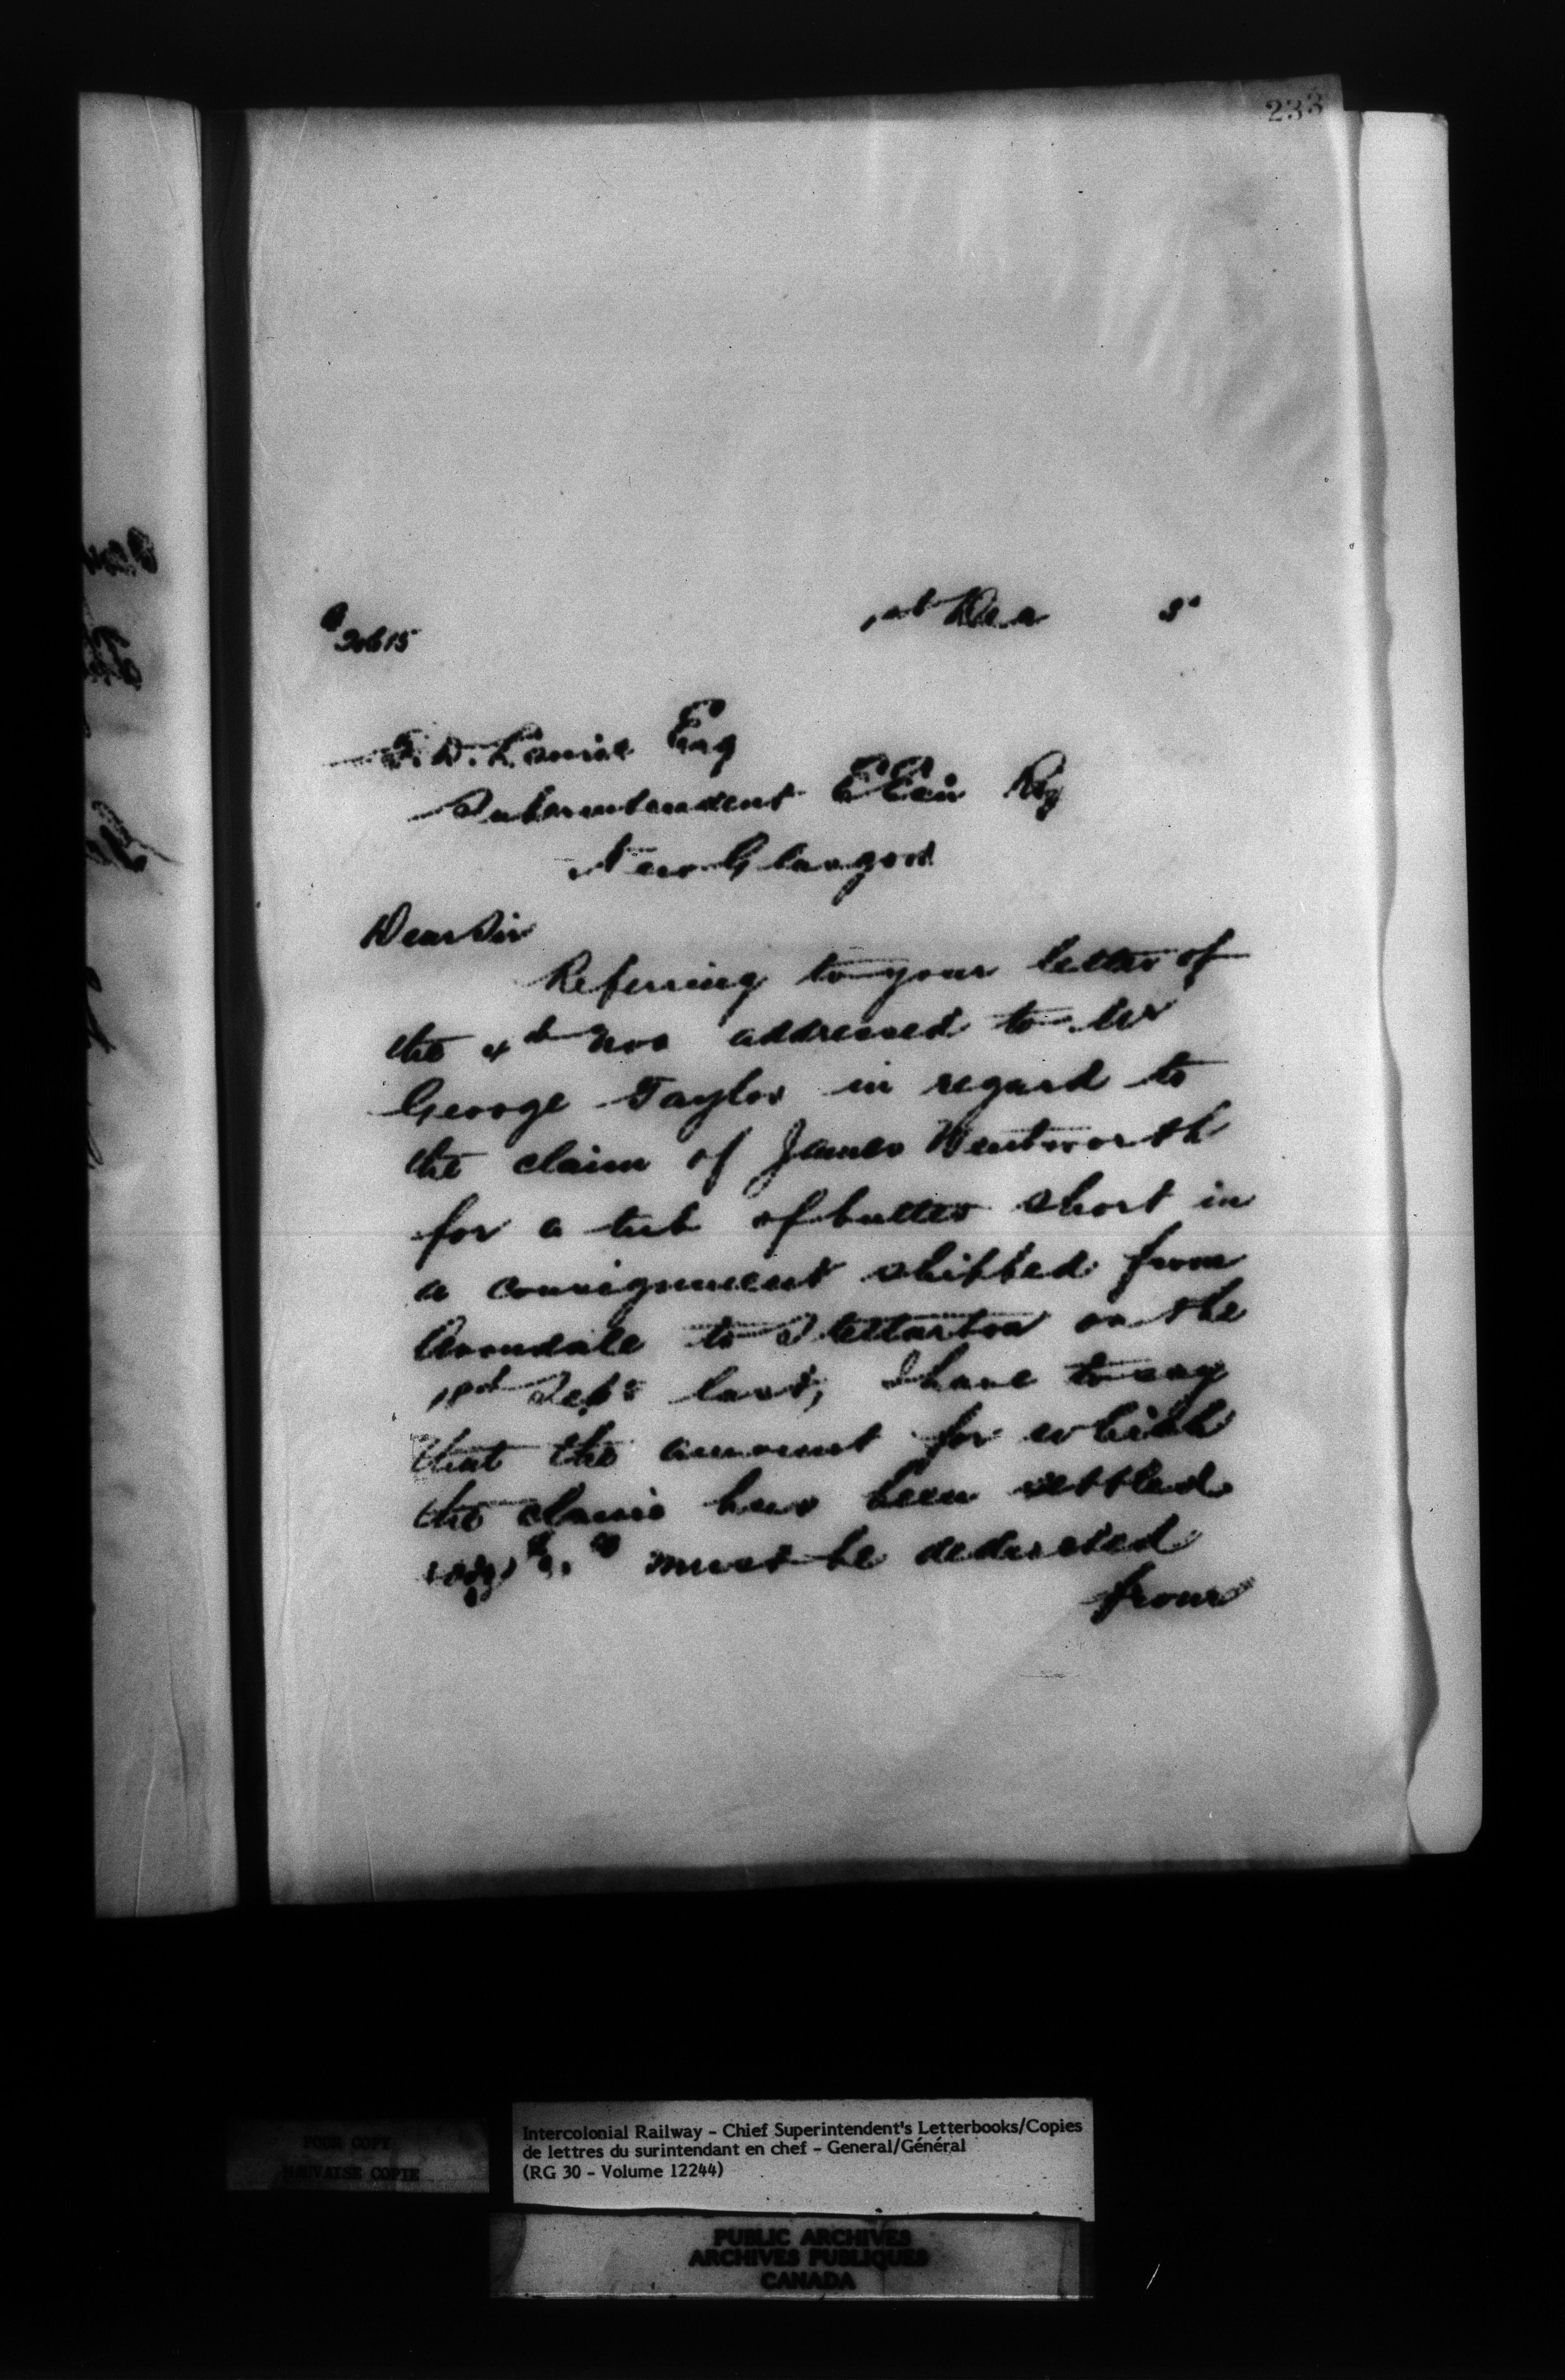 233
1st Dec 5
J. D. Laurie Esq
Superintendent E Ex Ry
New Glasgow
Dear Sir
Referring to your letter of
the 4th Nov addressed to Mr
George Taylor in regard to
the claim of James Wentworth
for a tub of butter short in
a consignment shipped from
Avondale to Stellarton on the
Sept last, I have to say
that the amount for which
the claim has been settled
must be deducted
from
POOR COPY
MAUVAISE COPIE
Intercolonial Railway - Chief Superintendent's Letterbooks/Copies
de lettres du surintendant en chef - General/Général
(RG 30 - Volume 12244)
PUBLIC ARCHIVES
ARCHIVES PUBLIQUES
CANADA